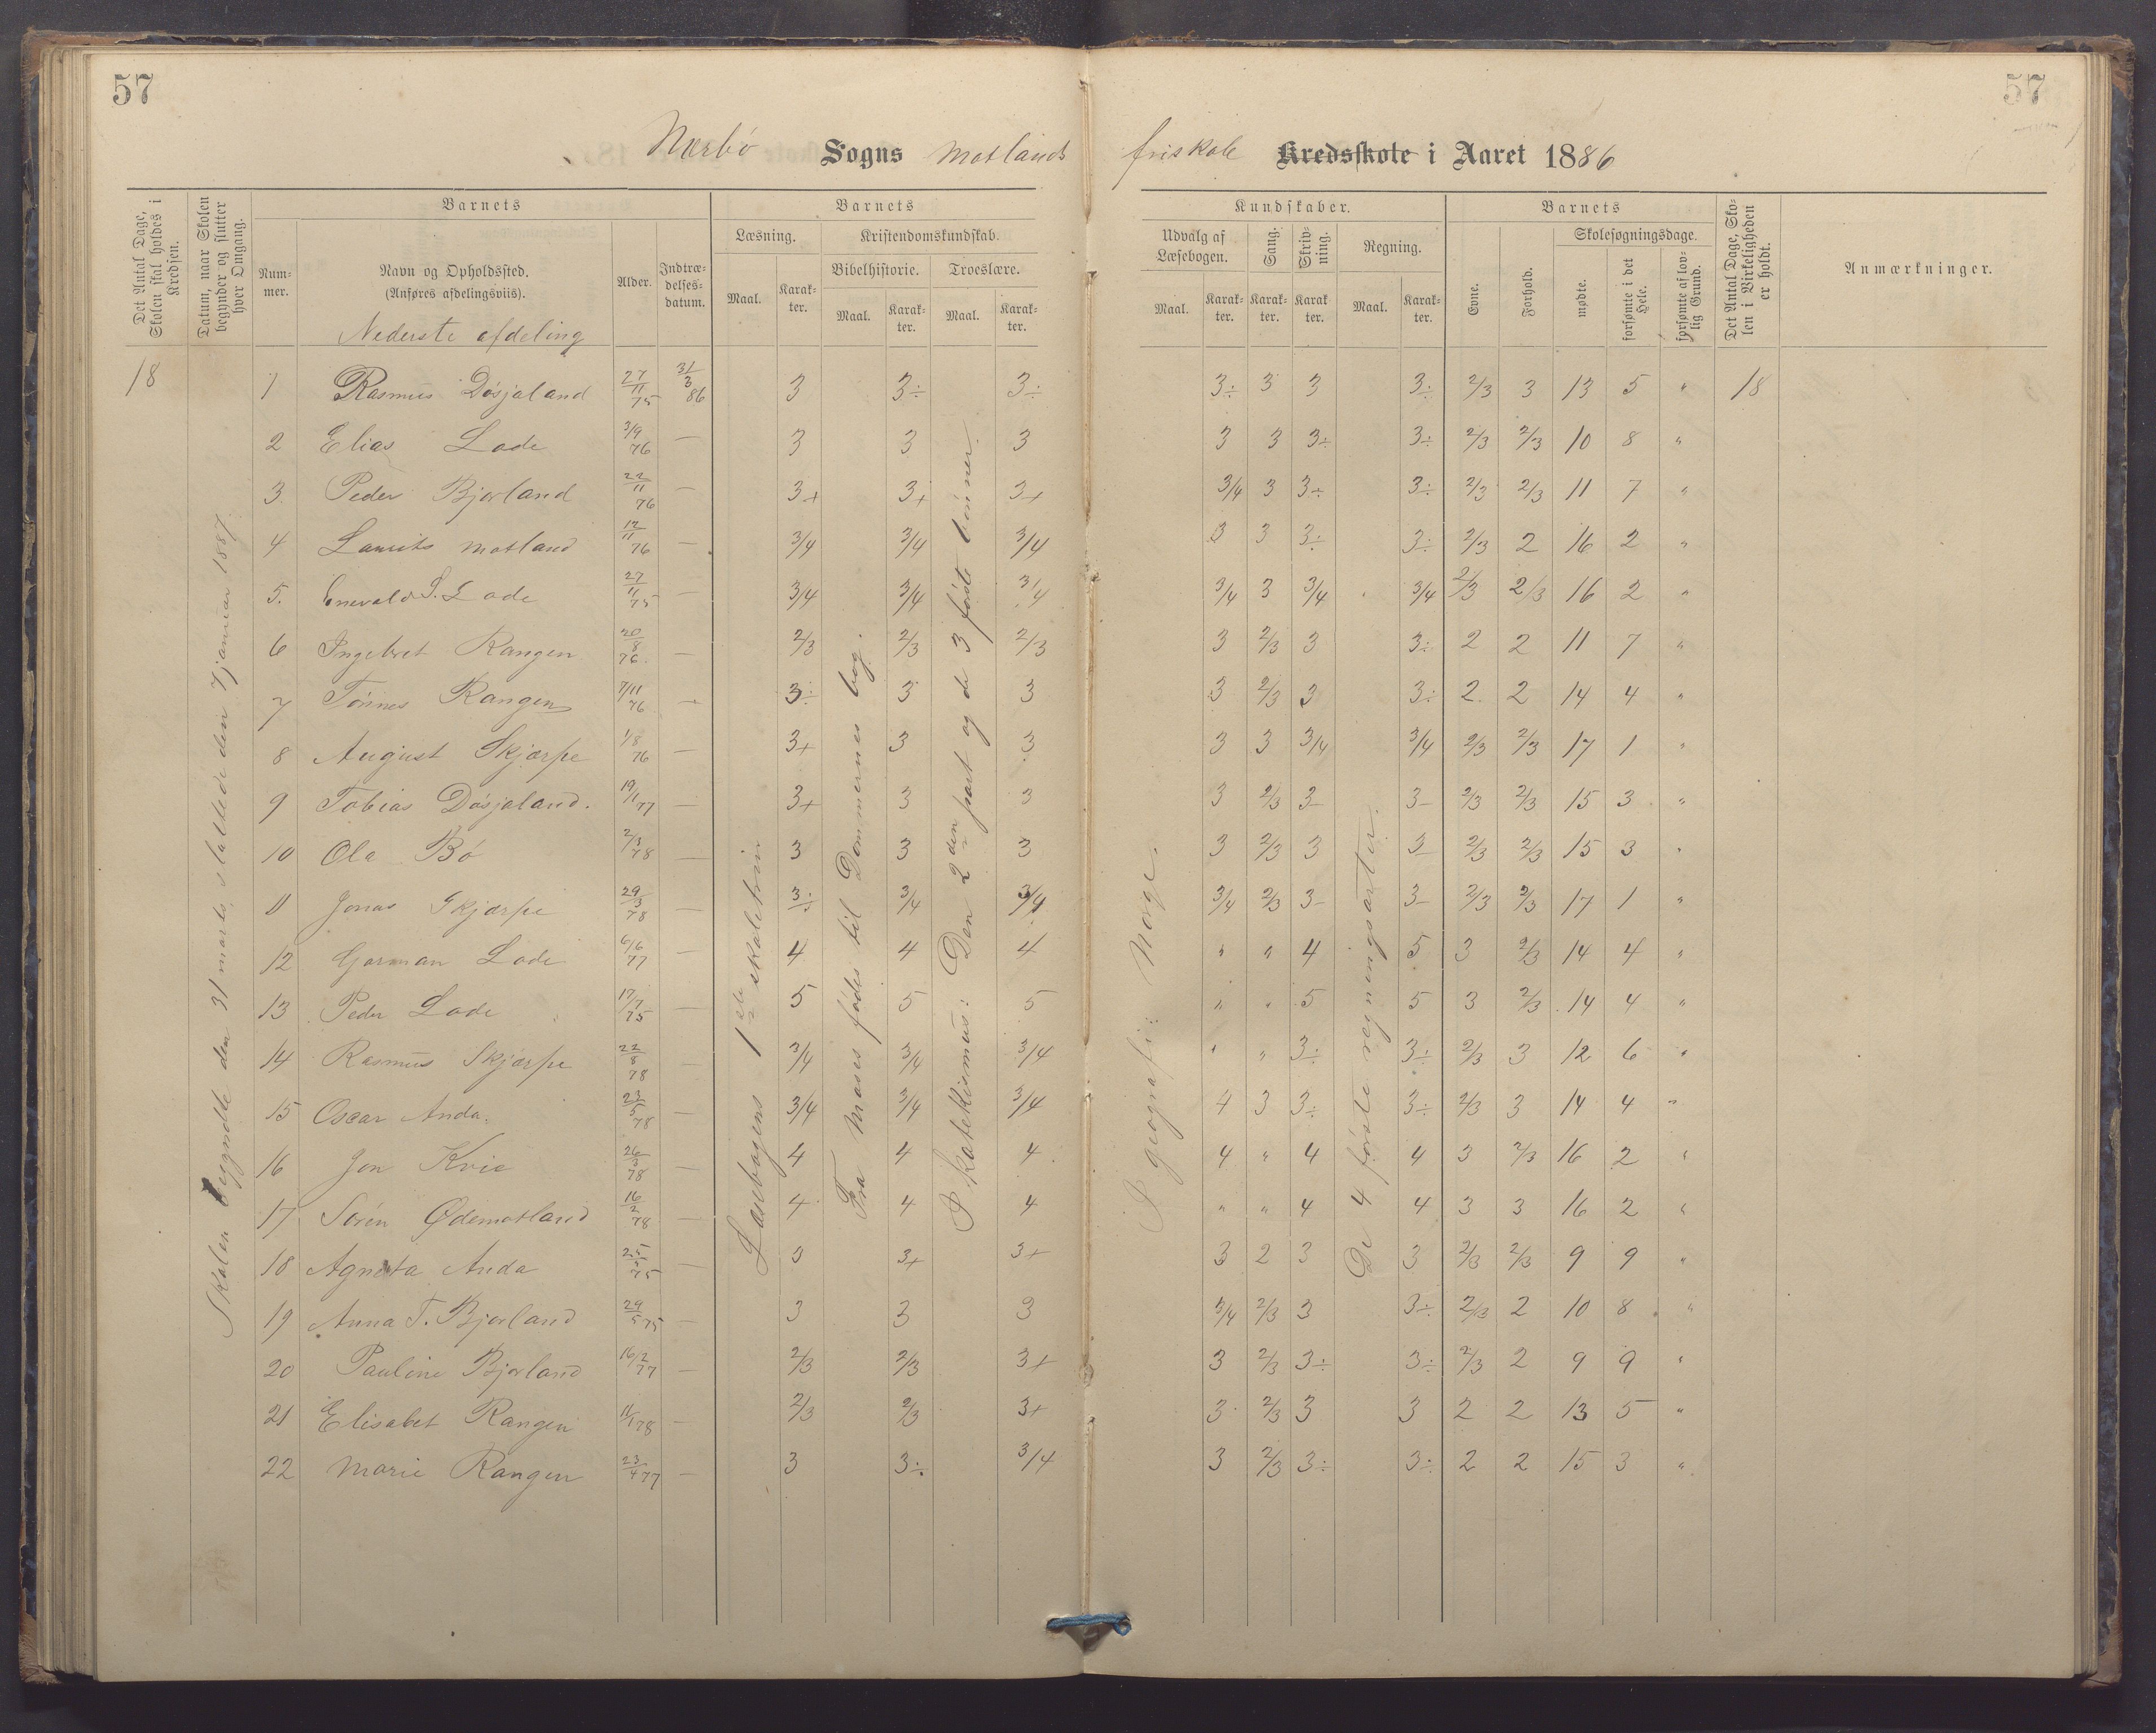 57
57
Nærbø Sogns Motlands friskole Kredsskole i Aaret 1886
Det Antal Dage, Skolen skal holdes i Kredsen.
Datum, naar Skolen begynder og slutter hver Omgang.
Barnets
Num-
mer.
Navn og Opholdssted.
(Anføres afdelingsviis).
Nederste afdeling
Alder.
Indtræ-
delses-
datum.
Barnets
Læsning.
Maal.
Karak-
ter.
Kristendomskundskab.
Bibelhistorie.
Maal.
Karak-
ter.
Troeslære.
Maal.
Karak-
ter.
Kundskaber.
Udvalg af
Læsebogen.
Maal.
Karak-
ter.
Sang.
Karak-
ter.
Skriv-
ning.
Karak
ter.
Regning.
Maal.
Karak-
ter.
Barnets
Evne.
Forhold.
Skolesøgningsdage.
mødte.
forsømte i det
Hele.
forsømte af lov-
lig Grund.
Det Antal Dage, Sko-
len i Virkeligheden
er holdt.
Anmærkninger.
18 1 Rasmus Døsjaland 27/11 75 31/3 86 3 3÷ 3÷ 3÷ 3 3 3÷ 2/3 3 13 5 " 18
2 Elias Lode 3/9 76 — 3 3 3 3 3 3÷ 3÷ 2/3 2/3 10 8 "
3 Peder Bjorland 22/11 76 — 3+ 3+ 3+ 3/4 3 3÷ 3÷ 2/3 2/3 11 7 "
4 Laurits Motland 12/11 76 — 3/4 3/4 3/4 3 3 3÷ 3÷ 2/3 2 16 2 "
5. Enevald S. Lode 27/11 75 — 3/4 3/4 3/4 3/4 3 3/4 3/4 2/3 2/3 16 2 "
6 Ingebret Rangen 20/8 76. — 2/3 2/3 2/3 3 2/3 3 3÷ 2 2 11 7 "
7 Tønnes Rangen 7/11 76 — 3÷ 3 3 3 2/3 3 3÷ 2 2 14 4 "
8 August Skjærpe 1/8 76 — 3+ 3 3 3 3 3/4 3/4 2/3 2/3 17 1 "
9 Tobias Døsjaland. 19/1 77 — 3+ 3 3 3 2/3 3- 3- 2/3 2/3 15 3 "
10 Ola Bø 2/3 78 — 3 3 3 3 2/3 3 3- 2/3 2/3 15 3 "
11 Jonas Skjærpe 29/3 78 — 3÷ 3/4 3/4 3/4 2/3 3- 3- 2/3 2/3 17 1 "
12 Gorman Lode 6/6 77 — 4 4 4 " " 4 5 3 2/3 14 4 "
13 Peder Lode 17/7 75 — 5 5 5 " " 5 5 3 2/3 14 4 "
14 Rasmus Skjærpe 22/8 78 — 3/4 3/4 3/4 " " 3÷ 3÷ 2/3 3 12 6 "
15 Oscar Anda. 23/5 78 — 3/4 3/4 3/4 4 3 3÷ 3÷ 2/3 3 14 4 "
16 Jon Kvie 26/3 78 — 4 4 4 4 " 4 4 3 2/3 16 2 "
17 Sørin Ødemotland 16/2 78 — 4 4 4 " " 4 4 3 3 16 2 "
18 Agneta Anda 25/5 75 — 3 3+ 3+ 3 2 3 3 2/3 2/3 9 9 "
19 Anna T. Bjorland 29/5 75 — 3 3 3 3/4 2/3 3 3÷ 2/3 2 10 8 "
20 Pauline Bjorland 16/2 77 — 2/3 2/3 3+ 3 2/3 3÷ 3÷ 2/3 2 9 9 "
21 Elisabet Rangen 11/1 78 — 2/3 2/3 3+ 3 2/3 3 3 2 2 13 5 "
22 Marie Rangen 23/4 77 — 3 3÷ 3/4 3 2/3 3÷ 3÷ 2 2 15 3 "
Skolen begyndte den 31 marts, sluttede den 7 januar 1887.
Læsebogens 1ste skoletrin
Fra Moses fødes til Dommernes bog.
I katekismus: Den 2den part og de 3 første bønner.
I geografi: Norge.
De 4 første regningsarter.